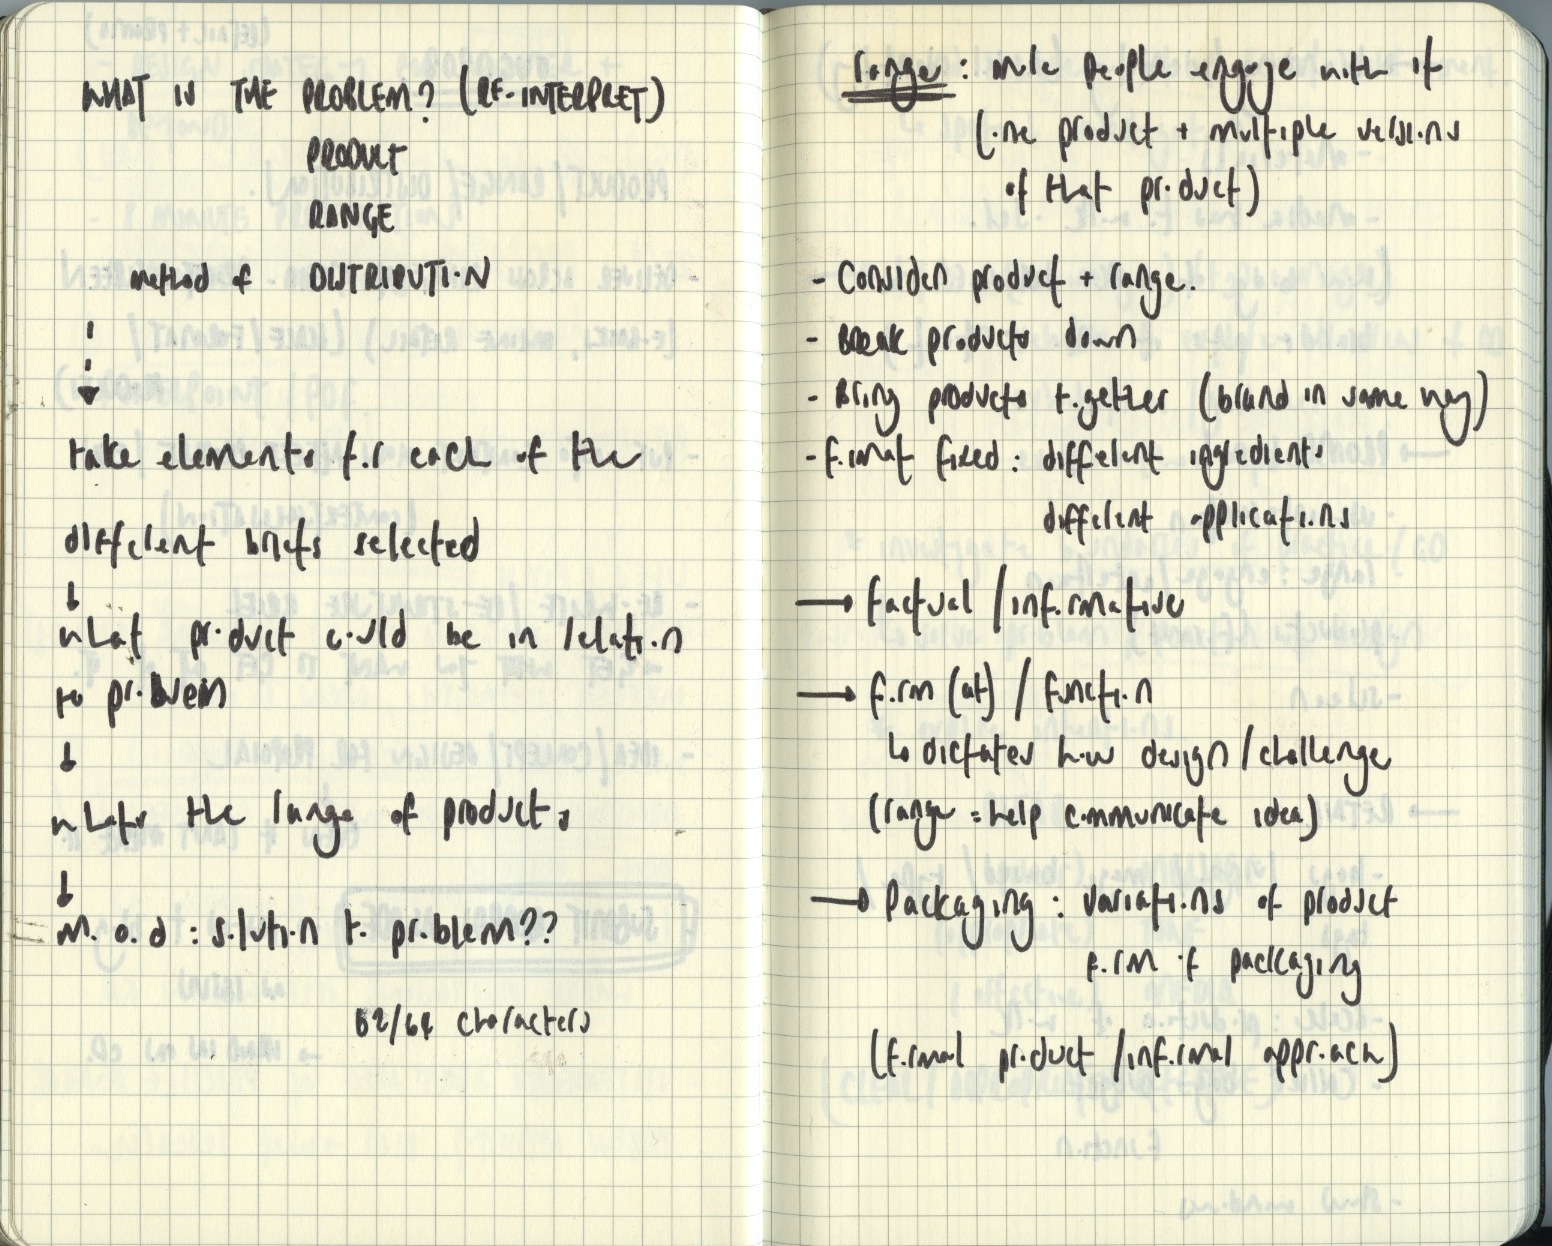 WHAT IS THE PROBLEM? (RE-INTERPRET)
PRODUCT
RANGE
method of DISTRIBUTION
take elements for each of the
different briefs selected
what product could be in relation
to problem
whats the range of products
M.O.D : solution to problem??
62/64 characters
range : more people engage with it
(one product + multiple versions
of that product)
- Consider product + range.
- Break products down
- Bring products together (brand in same way)
- format fixed : different ingredients
different applications
→ factual / informative
→ form (at) / function
↳ dictates how design / challenge
(range = help communicate idea)
→ Packaging : variations of product
form of packaging
(formal product / informal approach)